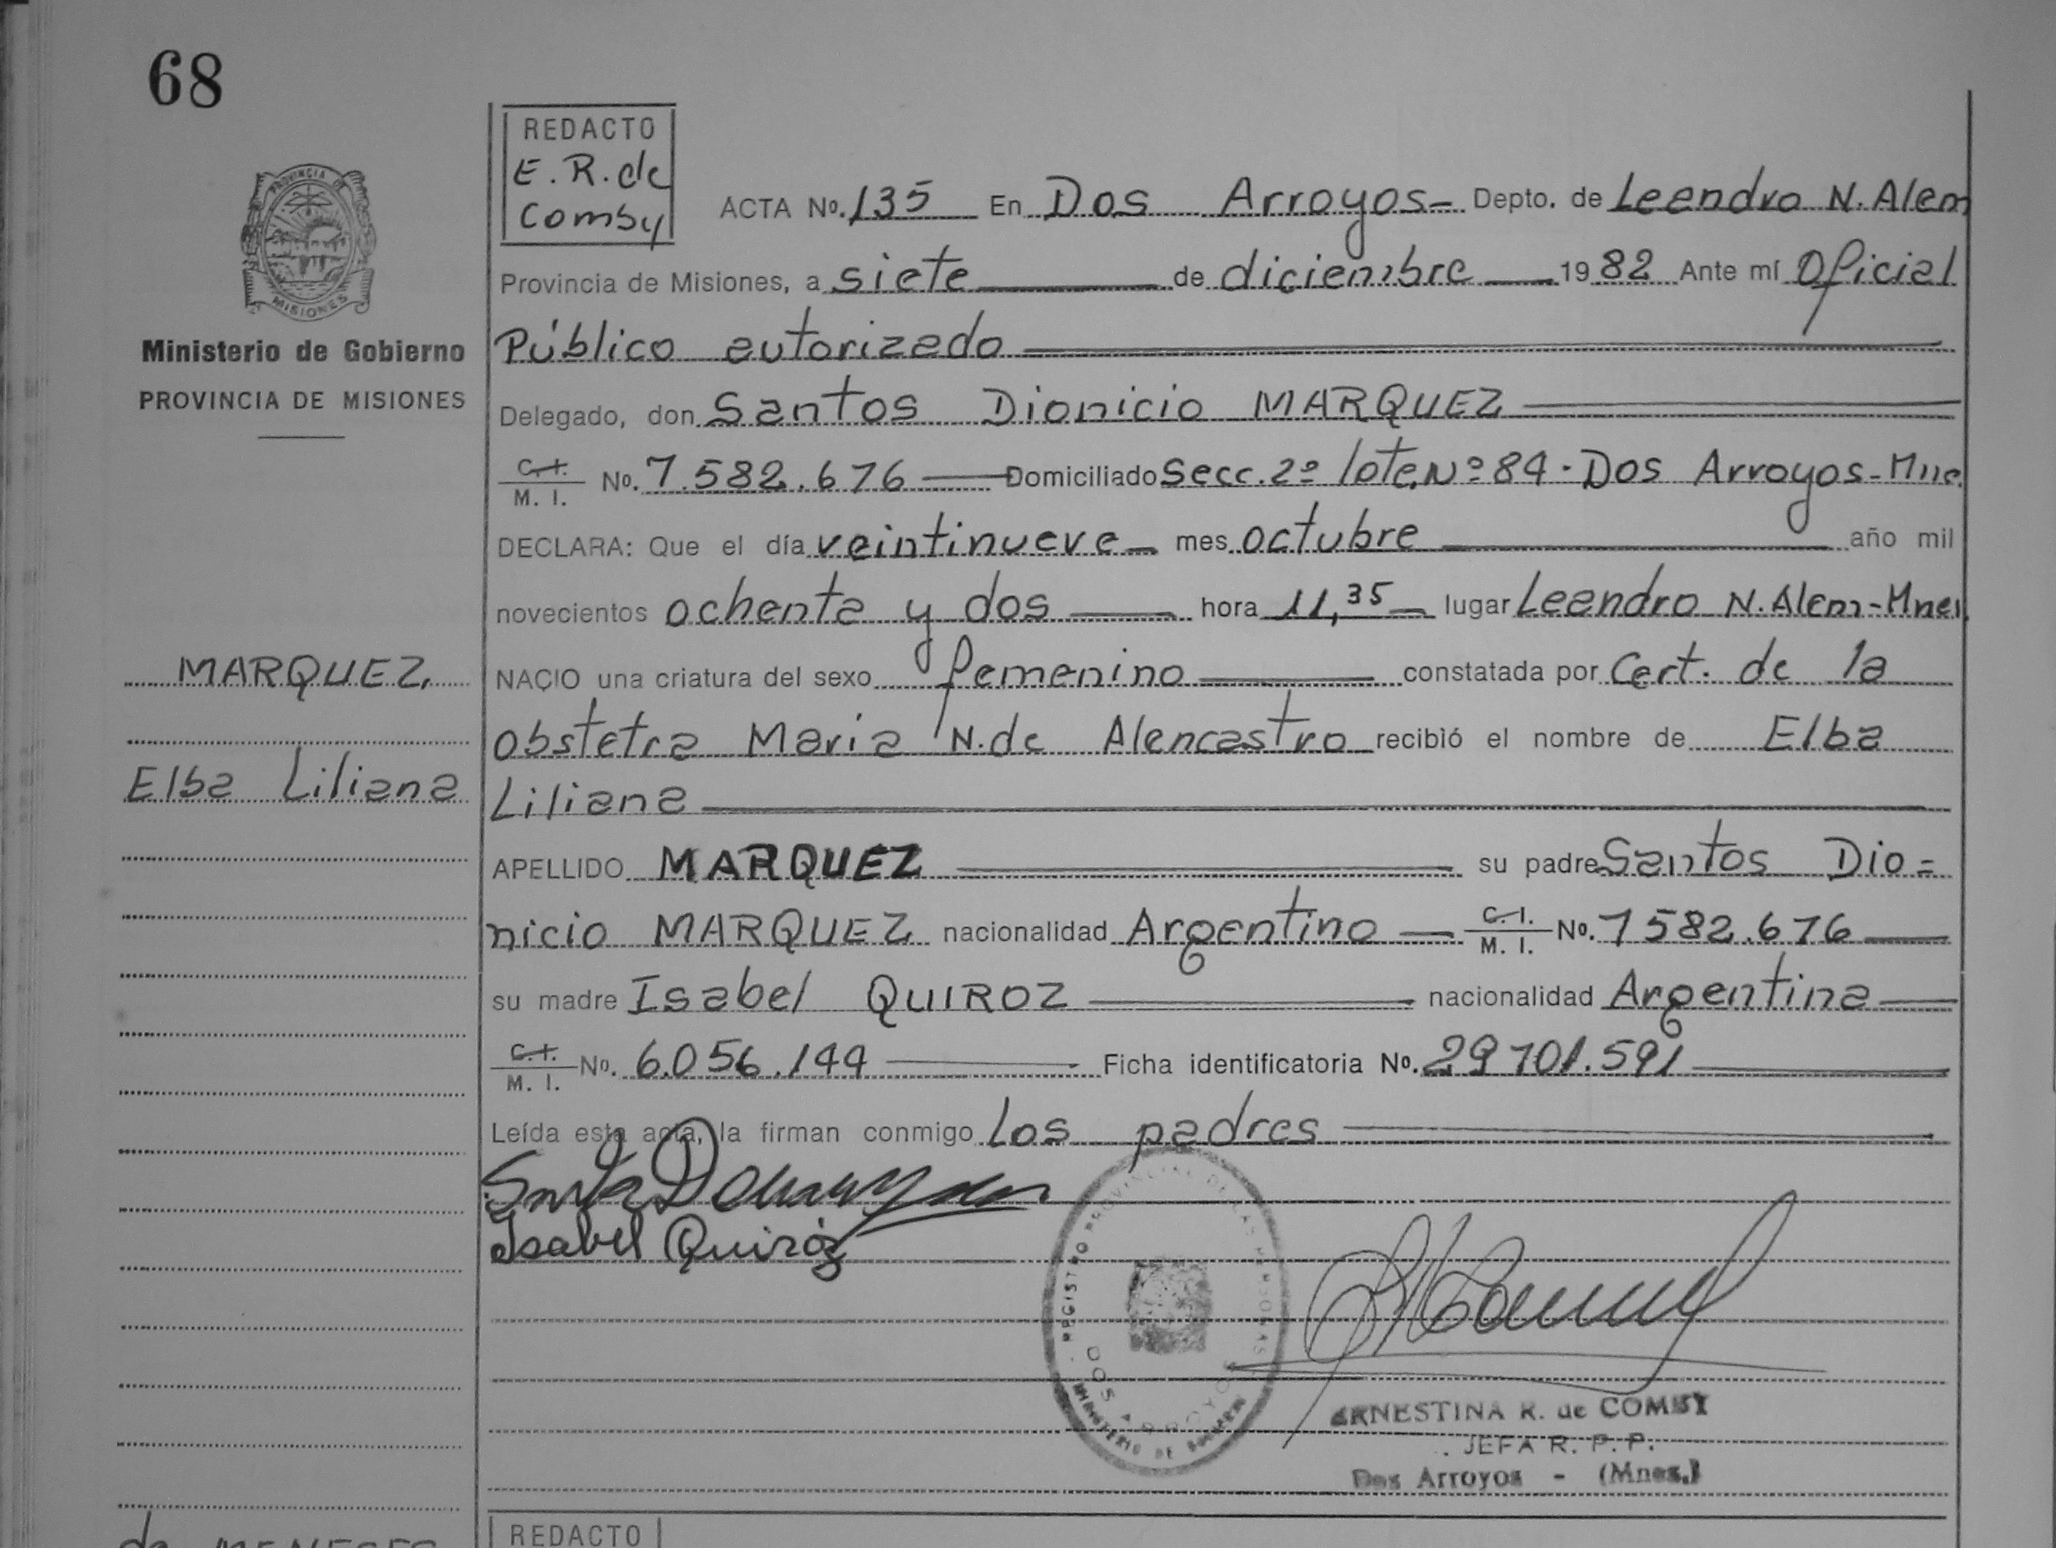 68
REDACTO
E. R. de
Comby
ACTA No. 135 En Dos Arroyos- Depto. de Leandro N. Alem
Provincia de Misiones, a siete de diciembre 1982 Ante mí Oficial
Público autorizado
Delegado, don Santos Dionicio MARQUEZ
C.I. M. I. No. 7.582.676 Domiciliado Secc. 2º lote Nº 84 - Dos Arroyos - Mnes
DECLARA: Que el día veintinueve mes octubre año mil
novecientos ochenta y dos hora 11,35 lugar Leandro N. Alem - Mnes
NACIO una criatura del sexo femenino constatada por Cert. de la
obstetra Maria N. de Alencastro recibió el nombre de Elba
Liliana
APELLIDO MARQUEZ su padre Santos Dio=
nicio MARQUEZ nacionalidad Argentino C. I. M. I. No. 7582.676
su madre Isabel QUIROZ nacionalidad Argentina
C.I. M. I. No. 6.056.144 Ficha identificatoria No. 29701.591
Leída esta acta, la firman conmigo los padres
Isabel Quiróz
PROVINCIA DE
MISIONES
Ministerio de Gobierno
PROVINCIA DE MISIONES
MARQUEZ,
Elba Liliana
REGISTRO PROVINCIAL DE LAS PERSONAS
DOS ARROYOS
MINISTERIO DE GOBIERNO
ERNESTINA R. de COMBY
JEFA R. P. P.
Dos Arroyos - (Mnes.)
REDACTO
de MENESES